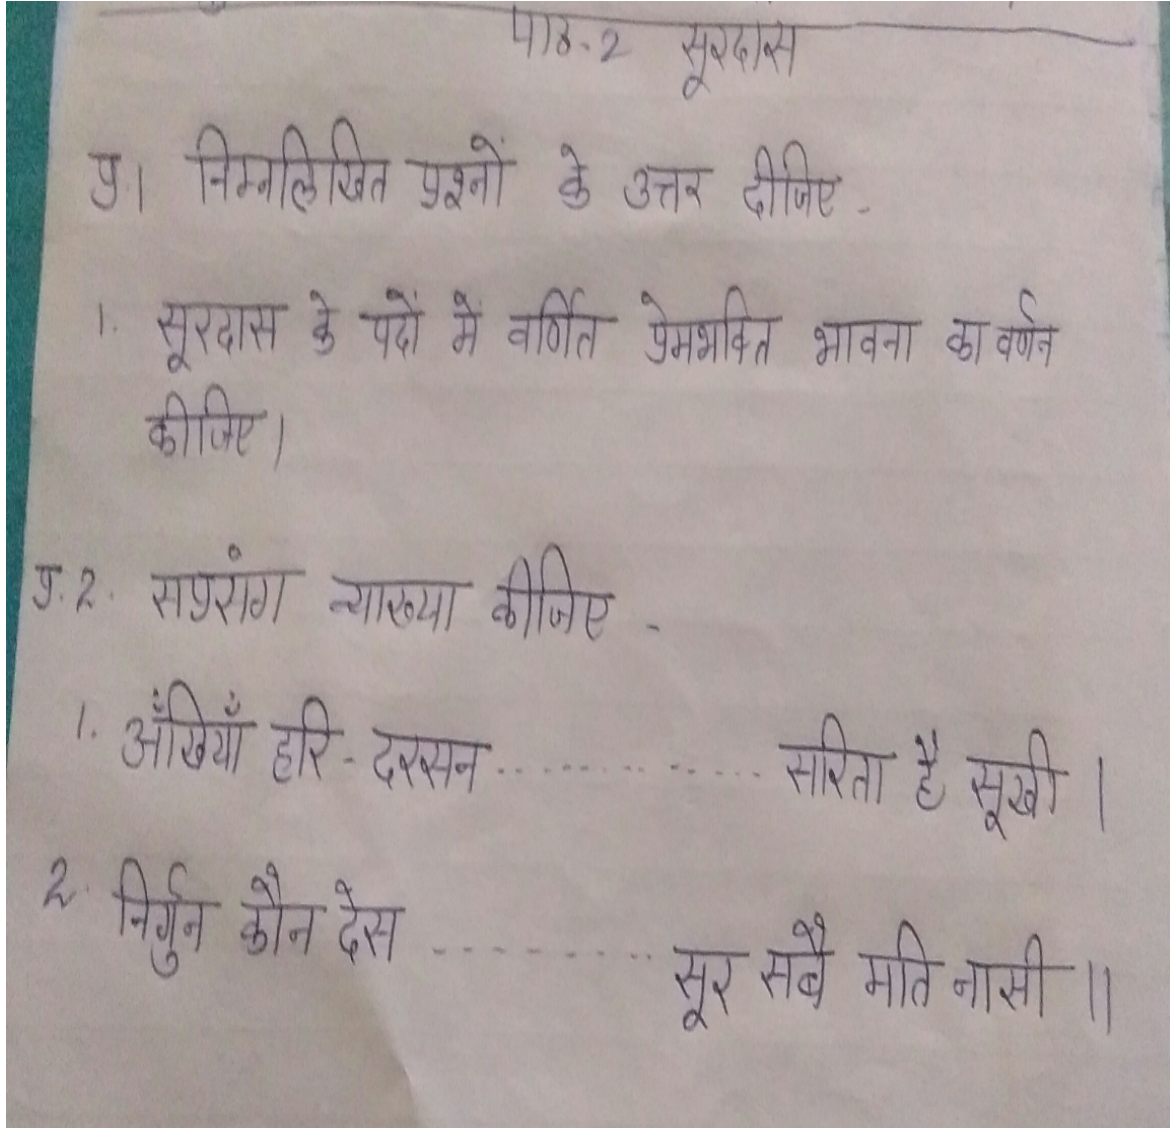 पाठ-2 सूरदास
प्र.1 निम्नलिखित प्रश्नों के उत्तर दीजिए -
1. सूरदास के पदों में वर्णित प्रेमभक्ति भावना का वर्णन
कीजिए।
प्र.2. सप्रसंग व्याख्या कीजिए -
1. अँखियाँ हरि-दरसन .............. सरिता है सूखी।
2. निर्गुन कौन देस ........... सूर सबै मति नासी॥